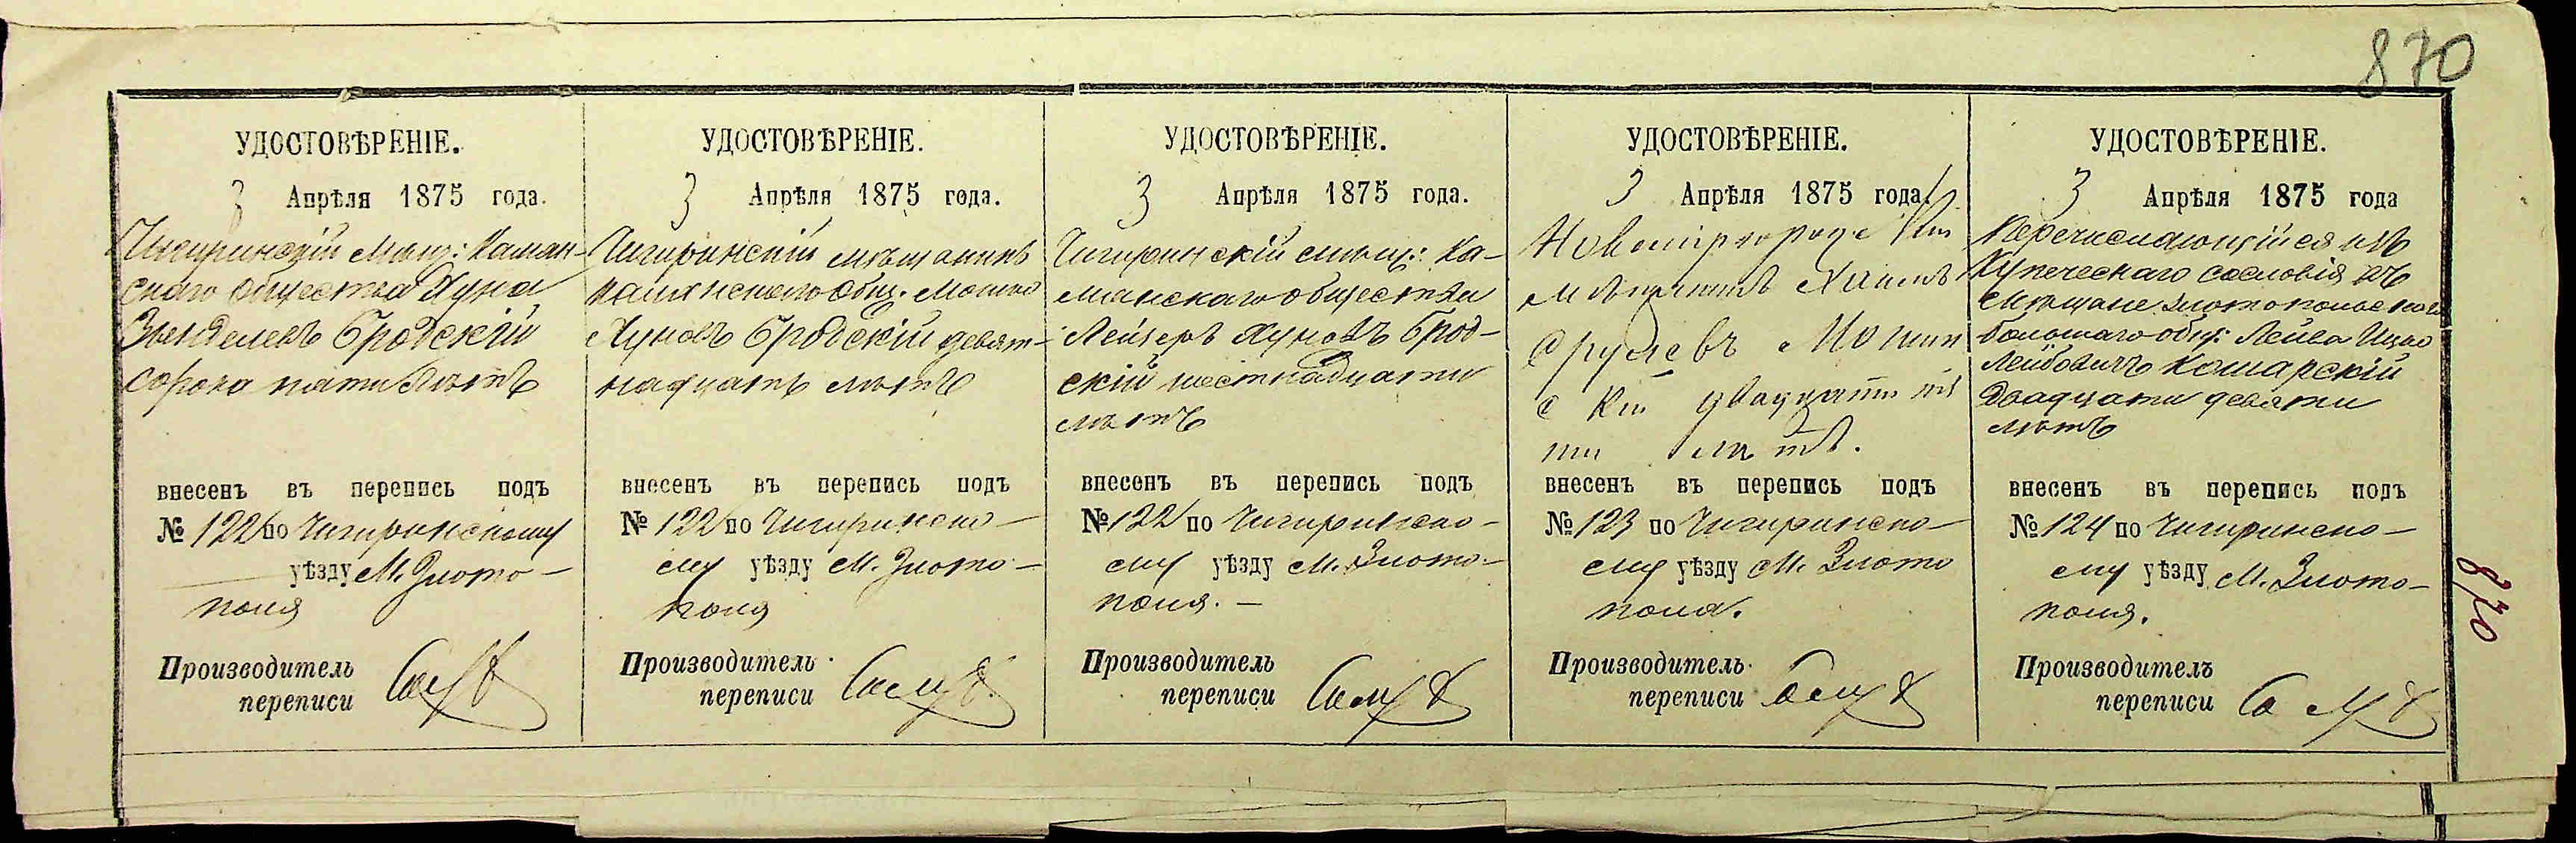 870
УДОСТОВѢРЕНІЕ.
3 Апрѣля 1875 года.
Чигиринскій мѣщ: Каман-
скаго общества Хуна
Зенделевъ Бродскій
сорока пяти лѣтъ
внесенъ въ перепись подъ
№ 122 по Чигиринскому
уѣзду М. Злото-
поля
Производитель
переписи
УДОСТОВѢРЕНІЕ.
3 Апрѣля 1875 года.
Чигиринскій мѣщанинъ
Каманскаго общ. Мошко
Хуновъ Бродскій девят-
надцать лѣтъ
внесенъ въ перепись подъ
№ 122 по Чигиринско-
му уѣзду М. Злото-
поля
Производитель
переписи
УДОСТОВѢРЕНІЕ.
3 Апрѣля 1875 года.
Чигиринскій мѣщ: Ка-
манскаго общества
Лейзеръ Хуновъ Брод-
скій шестнадцати
лѣтъ
внесенъ въ перепись подъ
№ 122 по Чигиринско-
му уѣзду М. Злото-
поля. —
Производитель
переписи
УДОСТОВѢРЕНІЕ.
3 Апрѣля 1875 года.
Новомиргородскій
мѣщанинъ Хаимъ
Срулевъ Мошин
скій двадцати пя
ти лѣтъ.
внесенъ въ перепись подъ
№ 123 по Чигиринско-
му уѣзду М. Злото
поля.
Производитель
переписи
УДОСТОВѢРЕНІЕ.
3 Апрѣля 1875 года
Перечисляющійся изъ
Купеческаго сословія въ
мѣщане Злотопольскаго
большаго общ: Лейба Ицко
Лейбовичъ Комарскій
двадцати девяти
лѣтъ
внесенъ въ перепись подъ
№ 124 по Чигиринско-
му уѣзду М. Злото-
поля.
Производитель
переписи
870